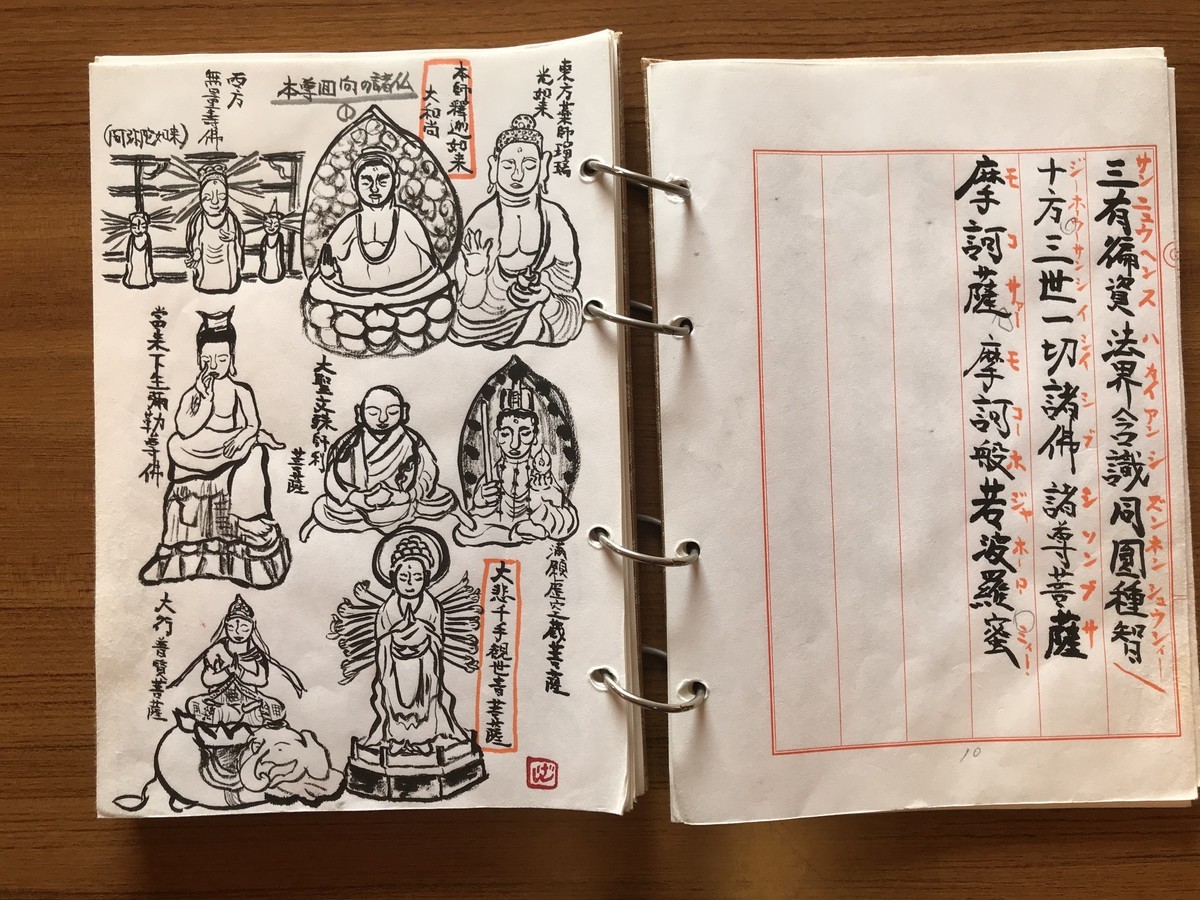 本尊回向の諸仏
①
東方薬師瑠璃
光如来
本師釋迦如来
大和尚
西方
無量壽佛
(阿弥陀如来)
當来下生彌勒尊佛
大聖文殊師利
菩薩
満願虚空蔵菩薩
大悲千手観世音菩薩
大行普賢菩薩
三有徧資法界含識同圓種智
サンニュウヘンスハカイアンシズンネンシュウンィー
十方三世一切諸佛諸尊菩薩
ジーホウサンシイシイシブシソンブサ
摩訶薩摩訶般若波羅蜜
モコサアーモコーホジャホーロミィー
10